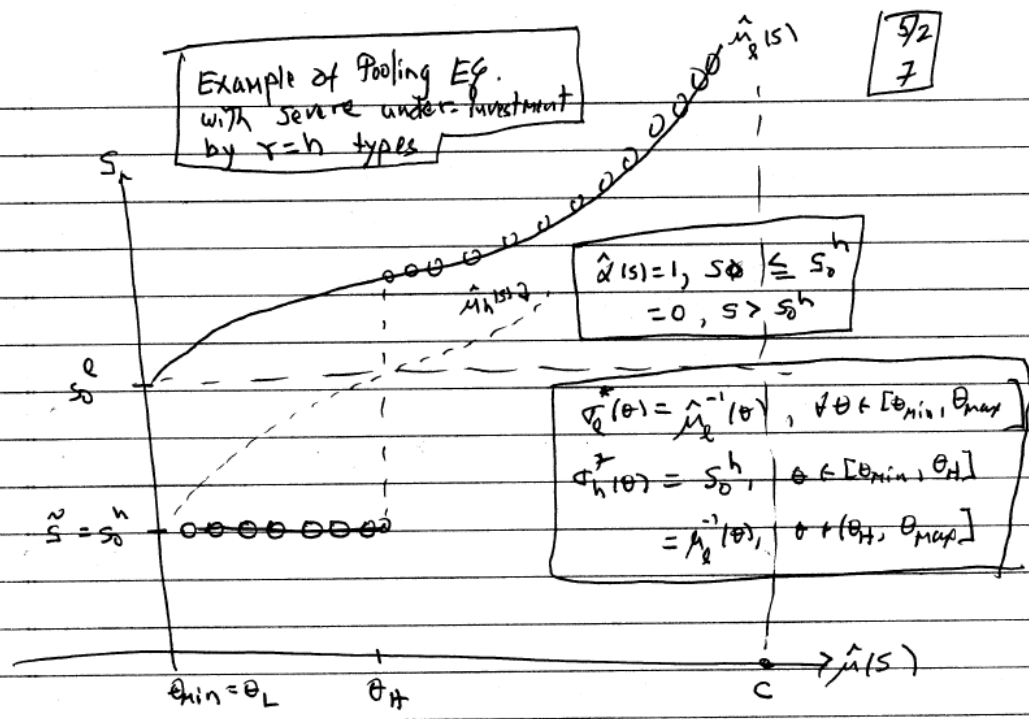 Example of Pooling EQ.
with severe under-investment
by r=h types
5/2
7
μ̂_l(s)
S
μ̂_h(s)
α̂(s)=1, s ≤ s_0^h
=0, s > s_0^h
s_0^l
σ_l^*(θ) = μ̂_l^{-1}(θ), ∀θ ∈ [θ_min, θ_max]
σ_h^*(θ) = s_0^h, θ ∈ [θ_min, θ_H]
= μ̂_l^{-1}(θ), θ ∈ (θ_H, θ_max]
s̃ = s_0^h
θ_min = θ_L
θ_H
C
μ̂(s)